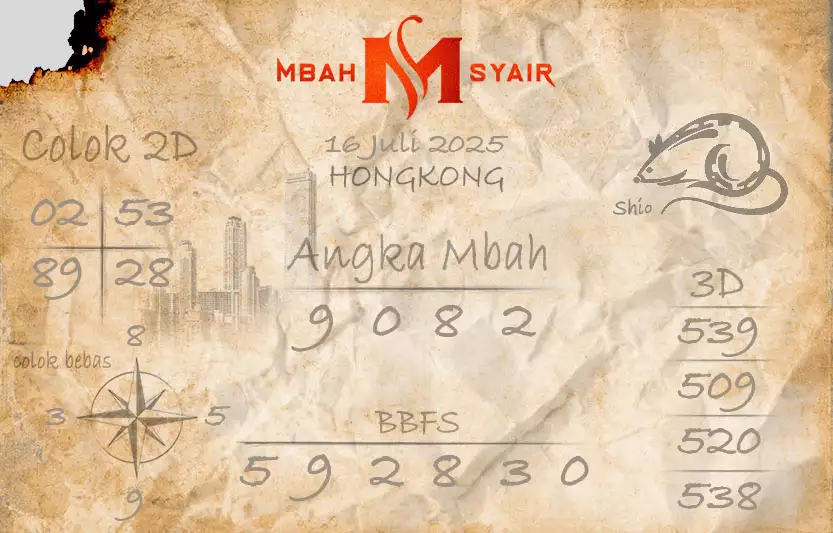 MBAH M SYAIR
Colok 2D
16 Juli 2025
HONGKONG
Shio
02 53
89 28
Angka Mbah
9 0 8 2
3D
539
509
520
538
8
colok bebas
3 5
9
BBFS
5 9 2 8 3 0